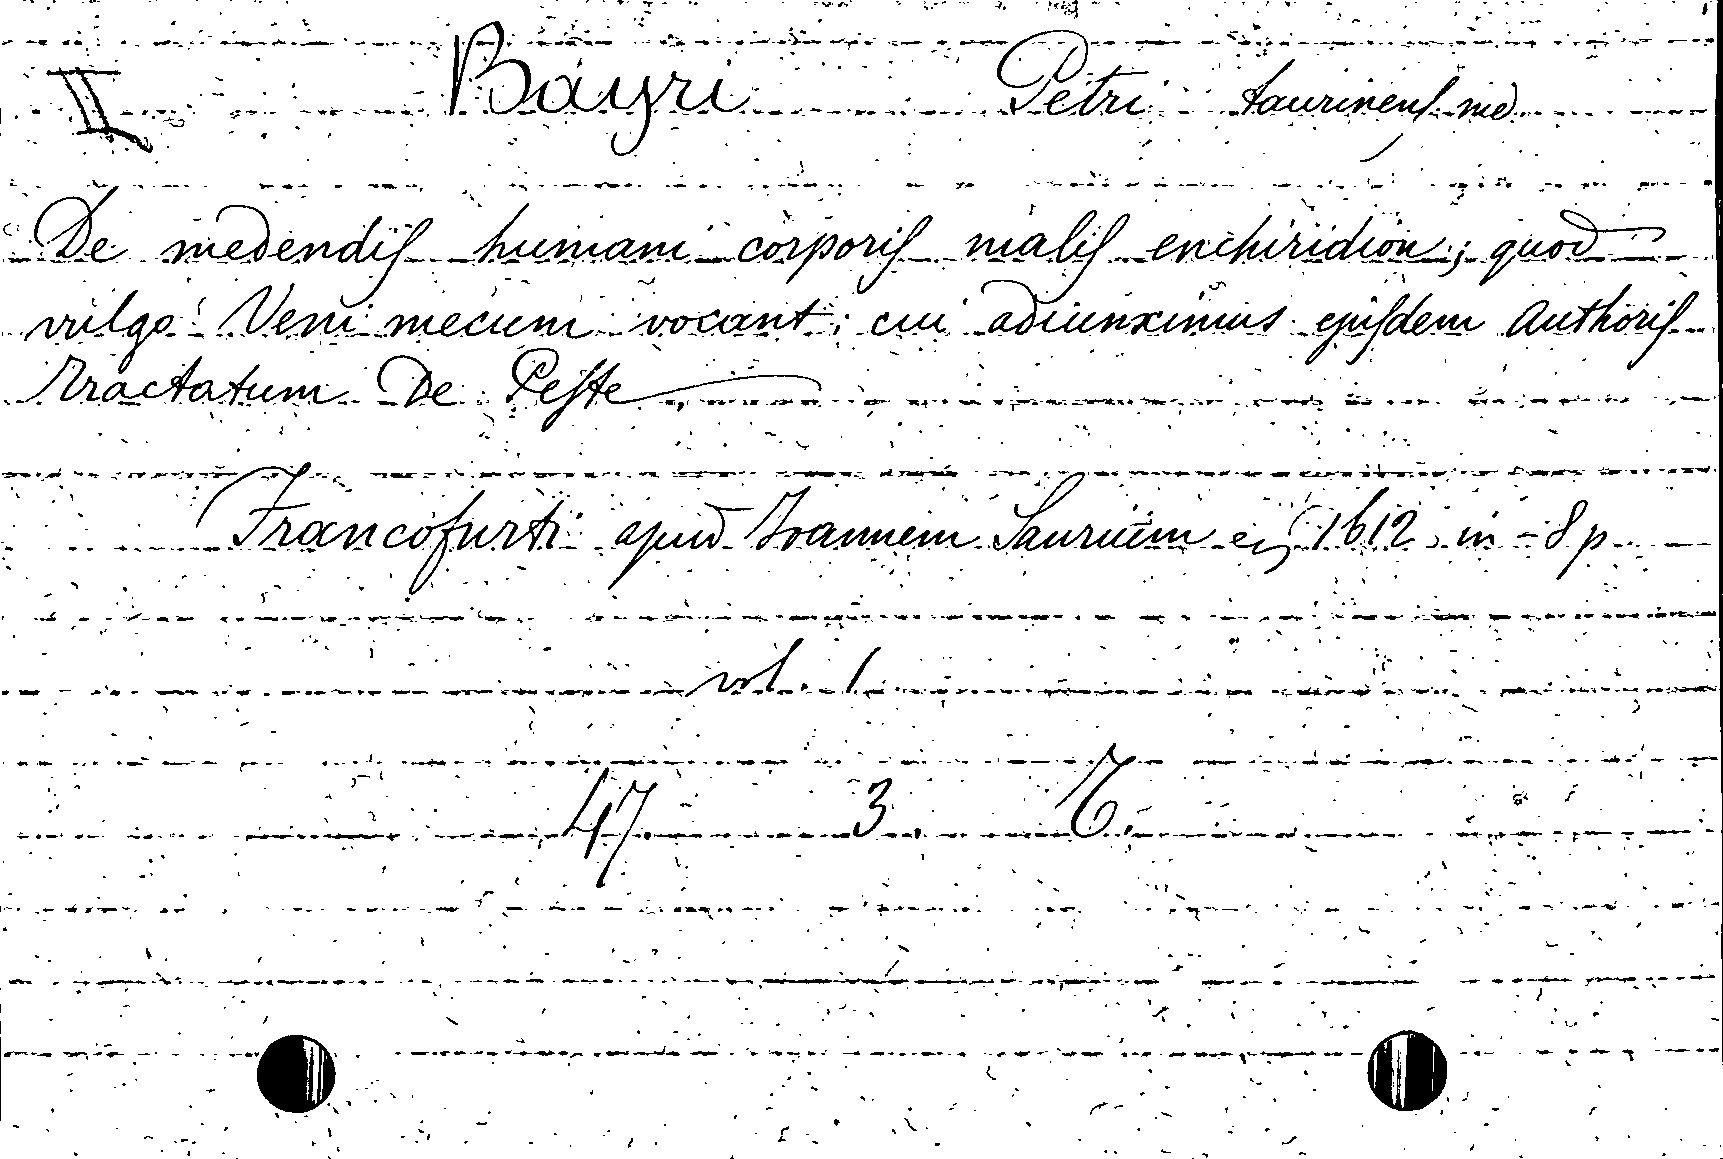 II Bayri Petri taurinens. med.
De medendis humani corporis malis enchiridion; quod
vulgo Veni mecum vocant; cui adiunximus ejusdem Authoris
Tractatum De Peste
Francofurti apud Joannem Saurium 1612 in-8 p
vol. 1
47. 3. 6.